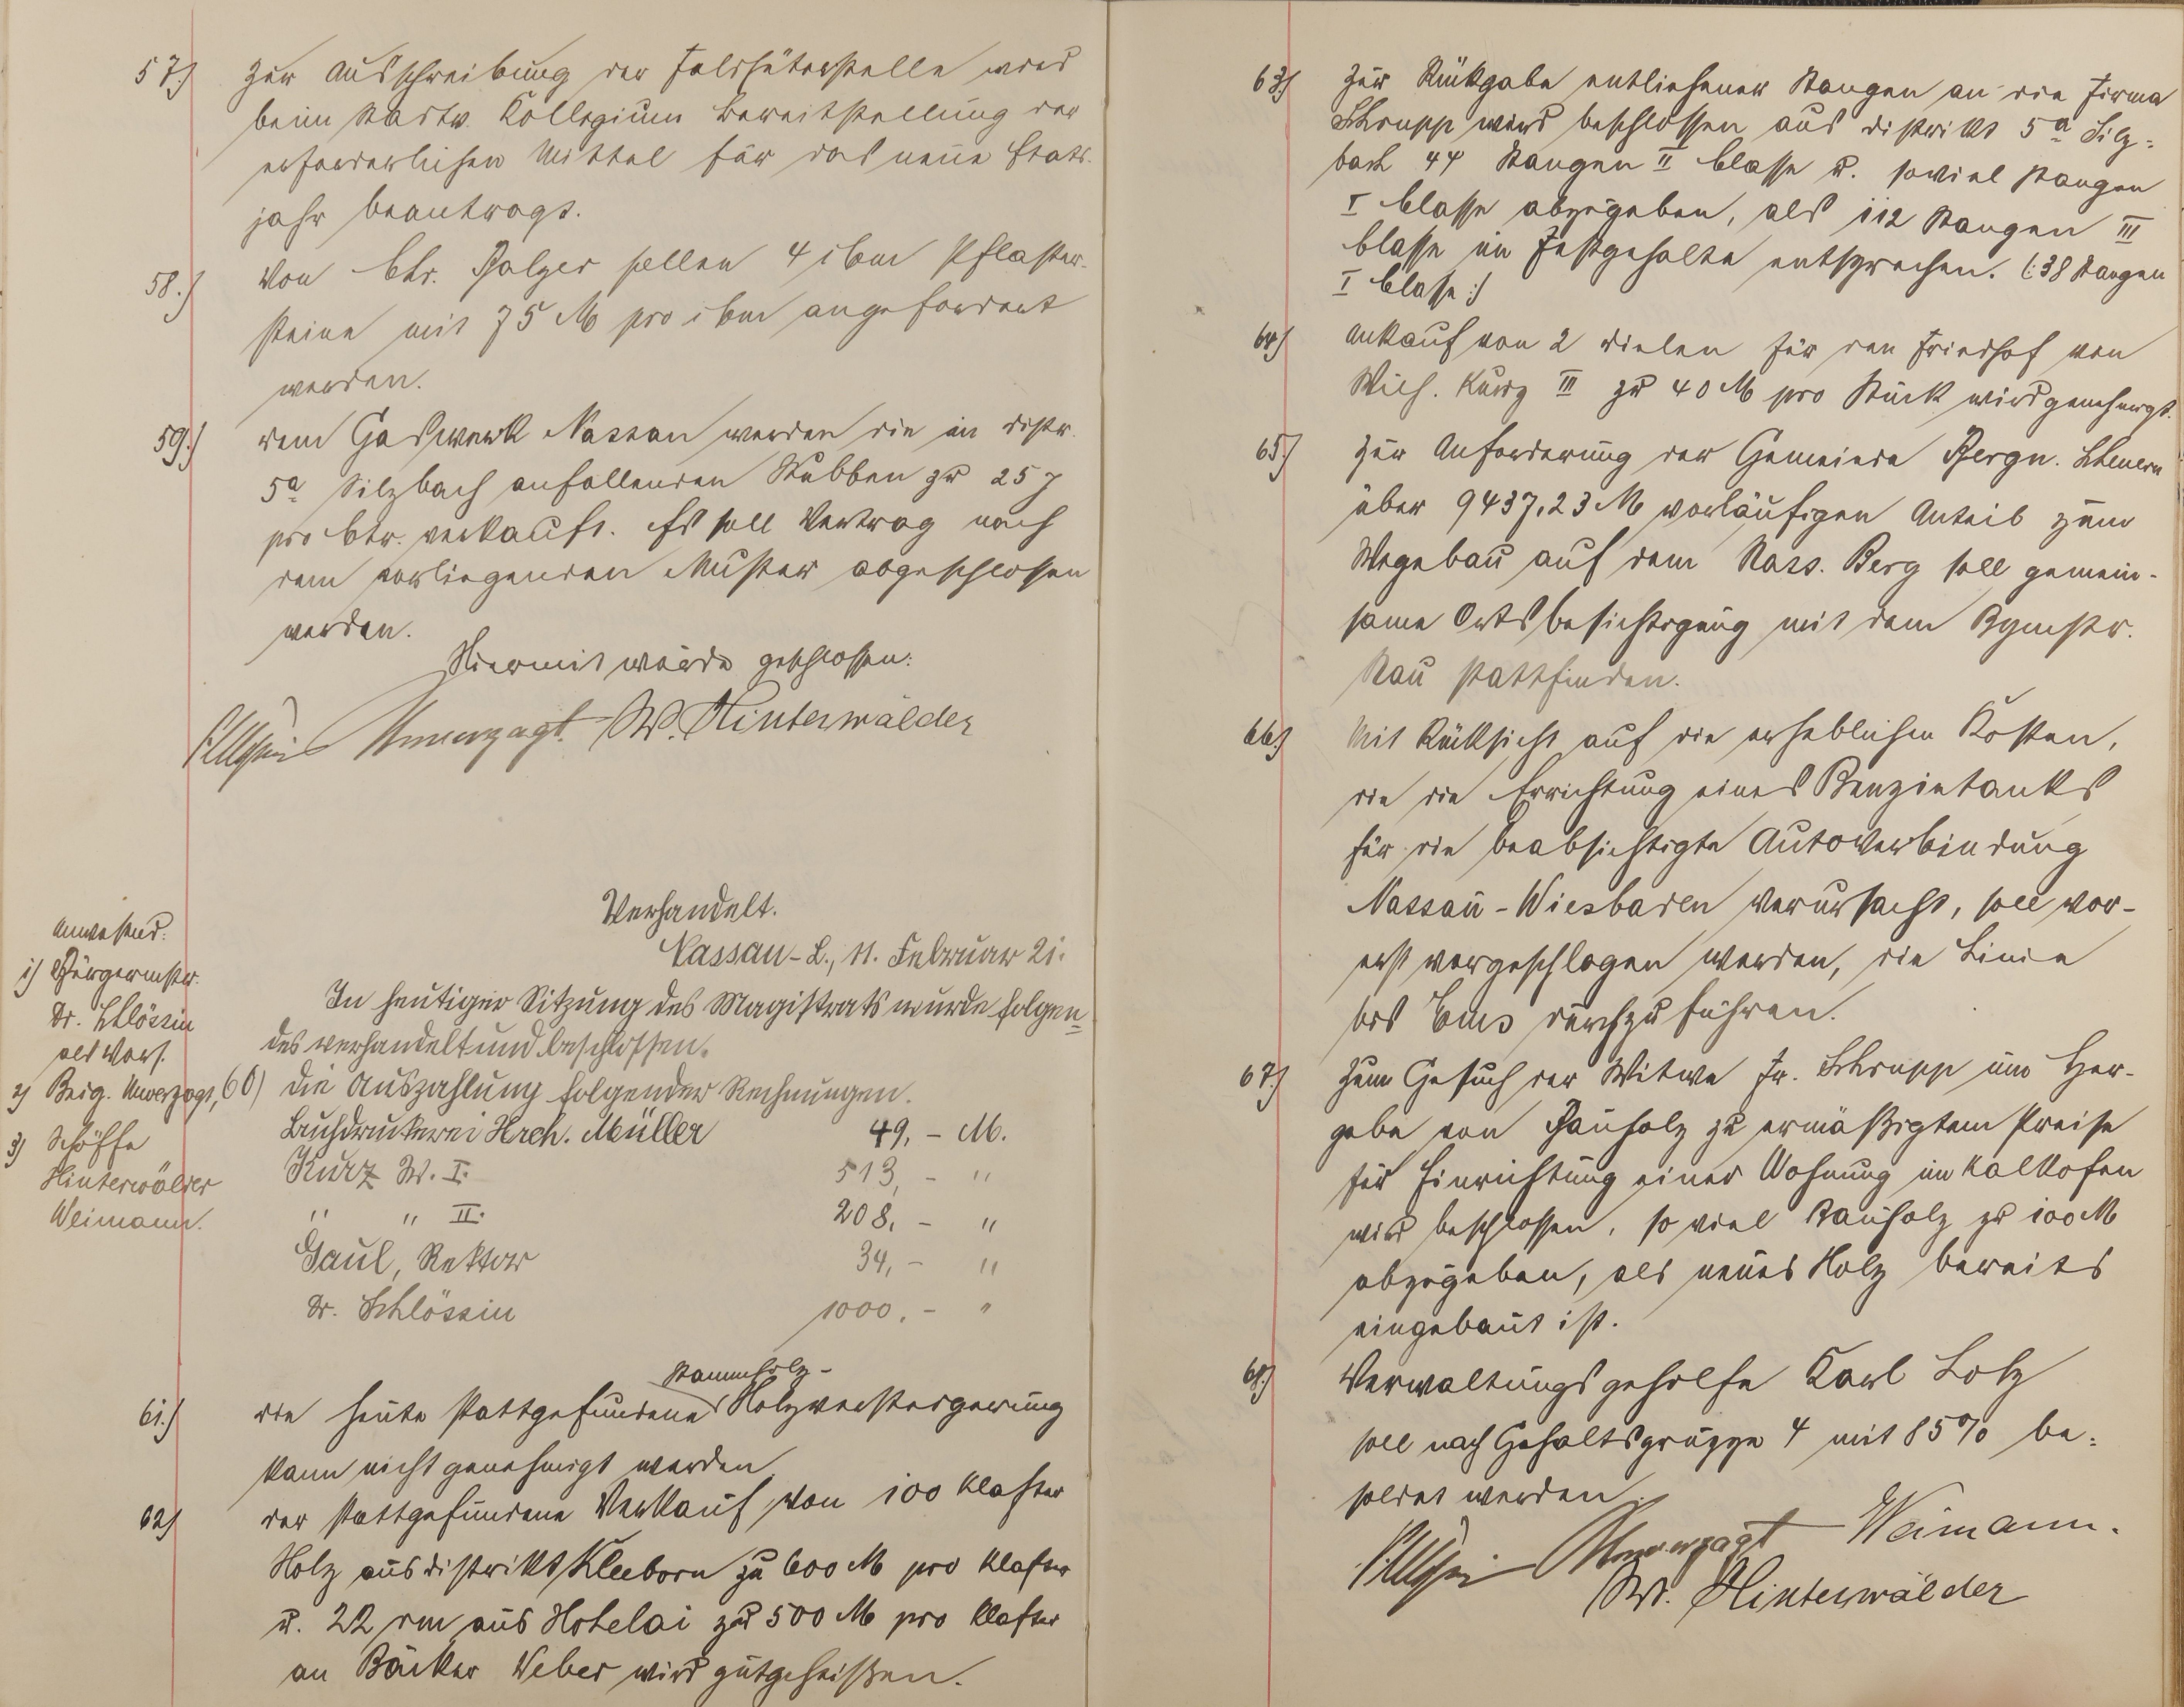 57.) Zur Ausschreibung der Feldhüterstelle wird
beim Stadtv. Kollegium Bereitstellung der
erforderlichen Mittel für das neue Etats-
jahr beantragt.
58.) Von Chr. Balzer sollen 4 cbm Pflaster-
steine mit 75 M pro cbm angefordert
werden.
59.) Dem Gaswerk Nassau werden die in Distr.
5a Silzbach anfallenden Stubben zu 25 J
pro Ctr. verkauft. Es soll Vertrag nach
dem vorliegenden Muster abgeschlossen
werden.
Hiermit wurde geschlossen:
Unverzagt. W. Hinterwälder
Verhandelt.
Nassau-L., 11. Februar 21.
Anwesend:
1) Bürgermstr.
Dr. Schlössin
als Vors.
2) Beig. Unverzagt,
3) Schöffe
Hinterwälder
Weimann.
In heutiger Sitzung des Magistrats wurde folgen-
des verhandelt und beschlossen.
60) Die Auszahlung folgender Rechnungen.
Buchdruckerei Hrch. Müller 49,- M.
Kurz W. I. 513,- "
" " II. 208,- "
Gaul, Rektor 34,- "
Dr. Schlössin 1000,- "
Stammholz-
61.) Die heute stattgefundene Holzversteigerung
kann nicht genehmigt werden.
62) Der stattgefundene Verkauf von 100 Klafter
Holz aus Distrikt Kleeborn zu 600 M pro Klafter
u. 22 rm aus Hohelai zu 500 M pro Klafter
an Bäcker Weber wird gutgeheißen.
63.) Zur Rückgabe entliehener Stangen an die Firma
Schrupp wird beschlossen aus Distrikt 5a Silz-
bach 44 Stangen II Classe u. soviel Stangen
I Classe abzugeben, als 112 Stangen III
Classe im Festgehalte entsprechen. (:38 Stangen
I Classe:)
64) Ankauf von 2 Dielen für den Friedhof von
Wilh. Kurz III zu 40 M pro Stück wird genehmigt.
65.) Zur Anforderung der Gemeinde Bergn. Scheuern
über 9437,23 M vorläufigen Anteil zum
Wegebau auf dem Nass. Berg soll gemein-
same Ortsbesichtigung mit dem Bgmstr.
Nau stattfinden.
66.) Mit Rücksicht auf die erheblichen Kosten,
die die Errichtung eines Benzintanks
für die beabsichtigte Autoverbindung
Nassau-Wiesbaden verursacht, soll vor-
erst vorgeschlagen werden, die Linie
bis Ems durchzuführen.
67.) Zum Gesuch der Witwe Fr. Schrupp um Her-
gabe von Bauholz zu ermäßigtem Preise
für Einrichtung einer Wohnung im Kalkofen
wird beschlossen, so viel Bauholz zu 100 M
abzugeben, als neues Holz bereits
eingebaut ist.
68.) Verwaltungsgehilfe Karl Lotz
soll nach Gehaltsgruppe 4 mit 85% be-
soldet werden.
Unverzagt Weimann.
W. Hinterwälder